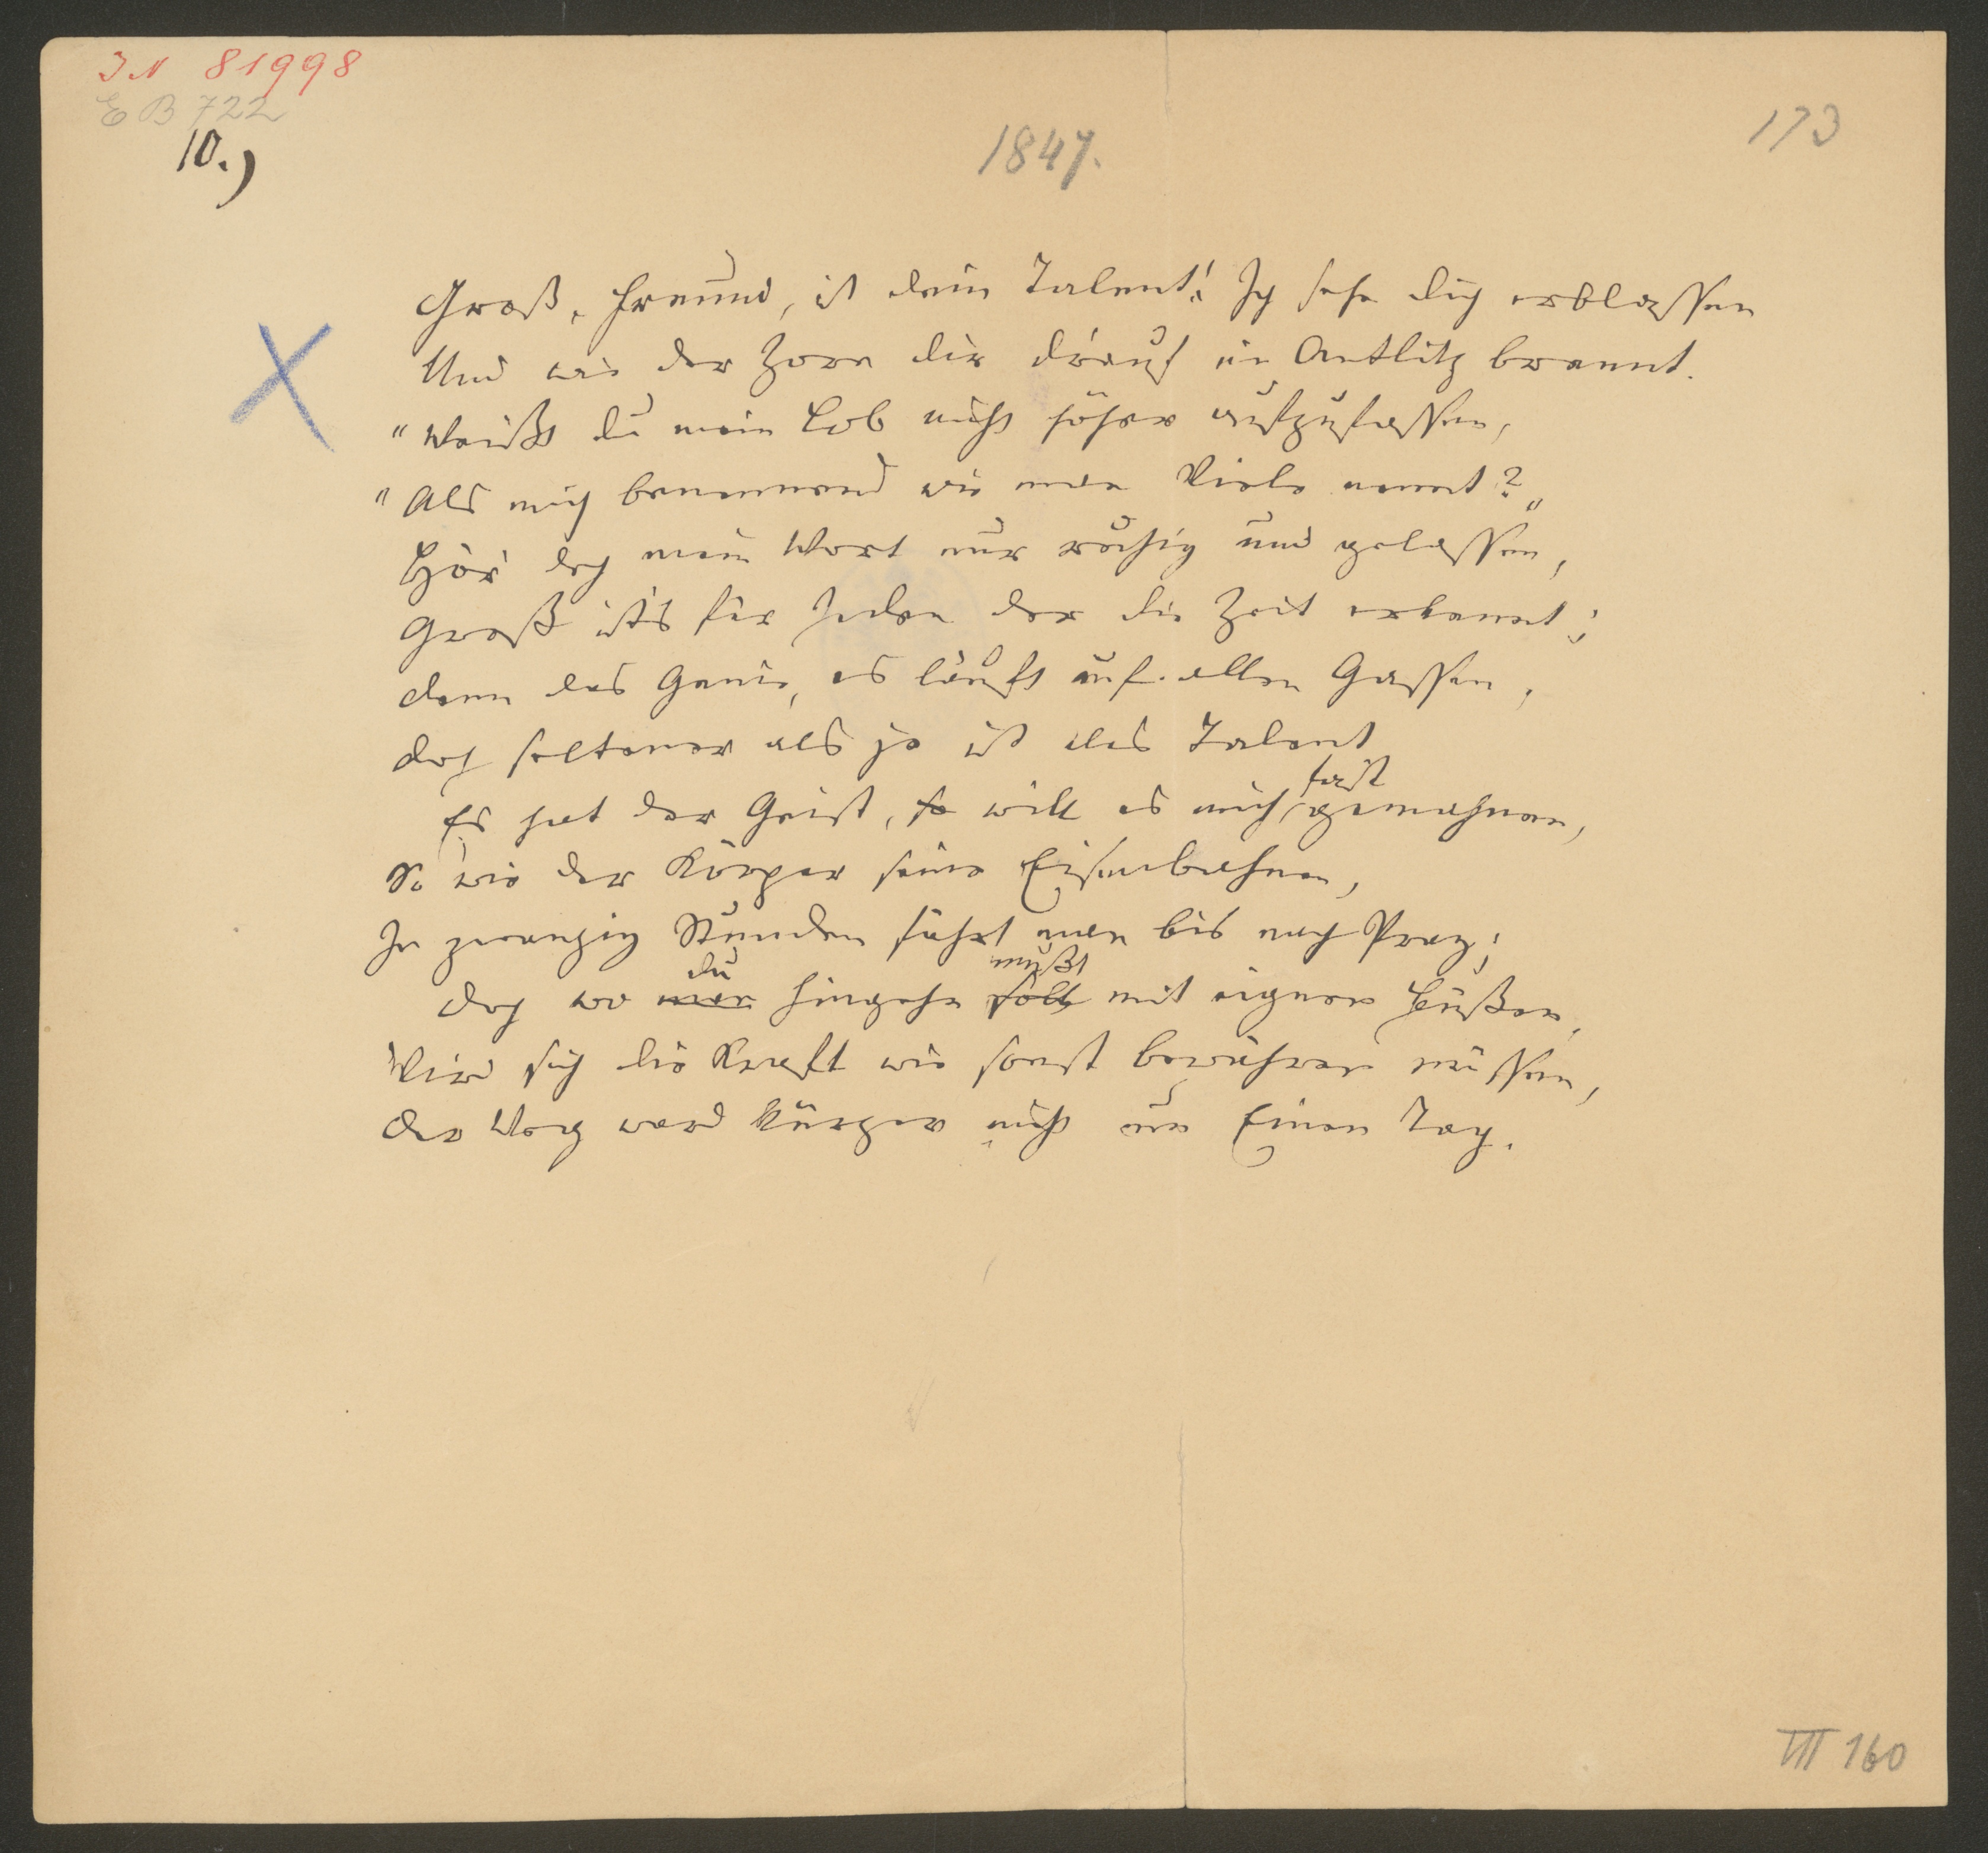 IN 81998
E B 722
10.)
1847.
173
Groß, Freund, ist dein Talent! Ich sehe dich erblassen
Und wie der Zorn dir drauf im Antlitz brennt.
"Weißt du mein Lob nicht höher aufzufassen,
"Als mich benennend wie man Viele nennt?"
Hör' doch mein Wort nur ruhig und gelassen,
Groß ist's für Jeden der die Zeit erkennt;
denn das Genie, es läuft auf allen Gassen,
doch seltener als je ist das Talent
fast
Es hat der Geist, so will es mich gemahnen,
So wie der Körper seine Eisenbahnen,
In zwanzig Stunden fährt man bis nach Prag;
du mußt
doch wo man hingehn soll mit eignen Füßen,
Wird sich die Kraft wie sonst bewähren müssen,
der Weg ward kürzer nicht um Einen Tag.
III 160